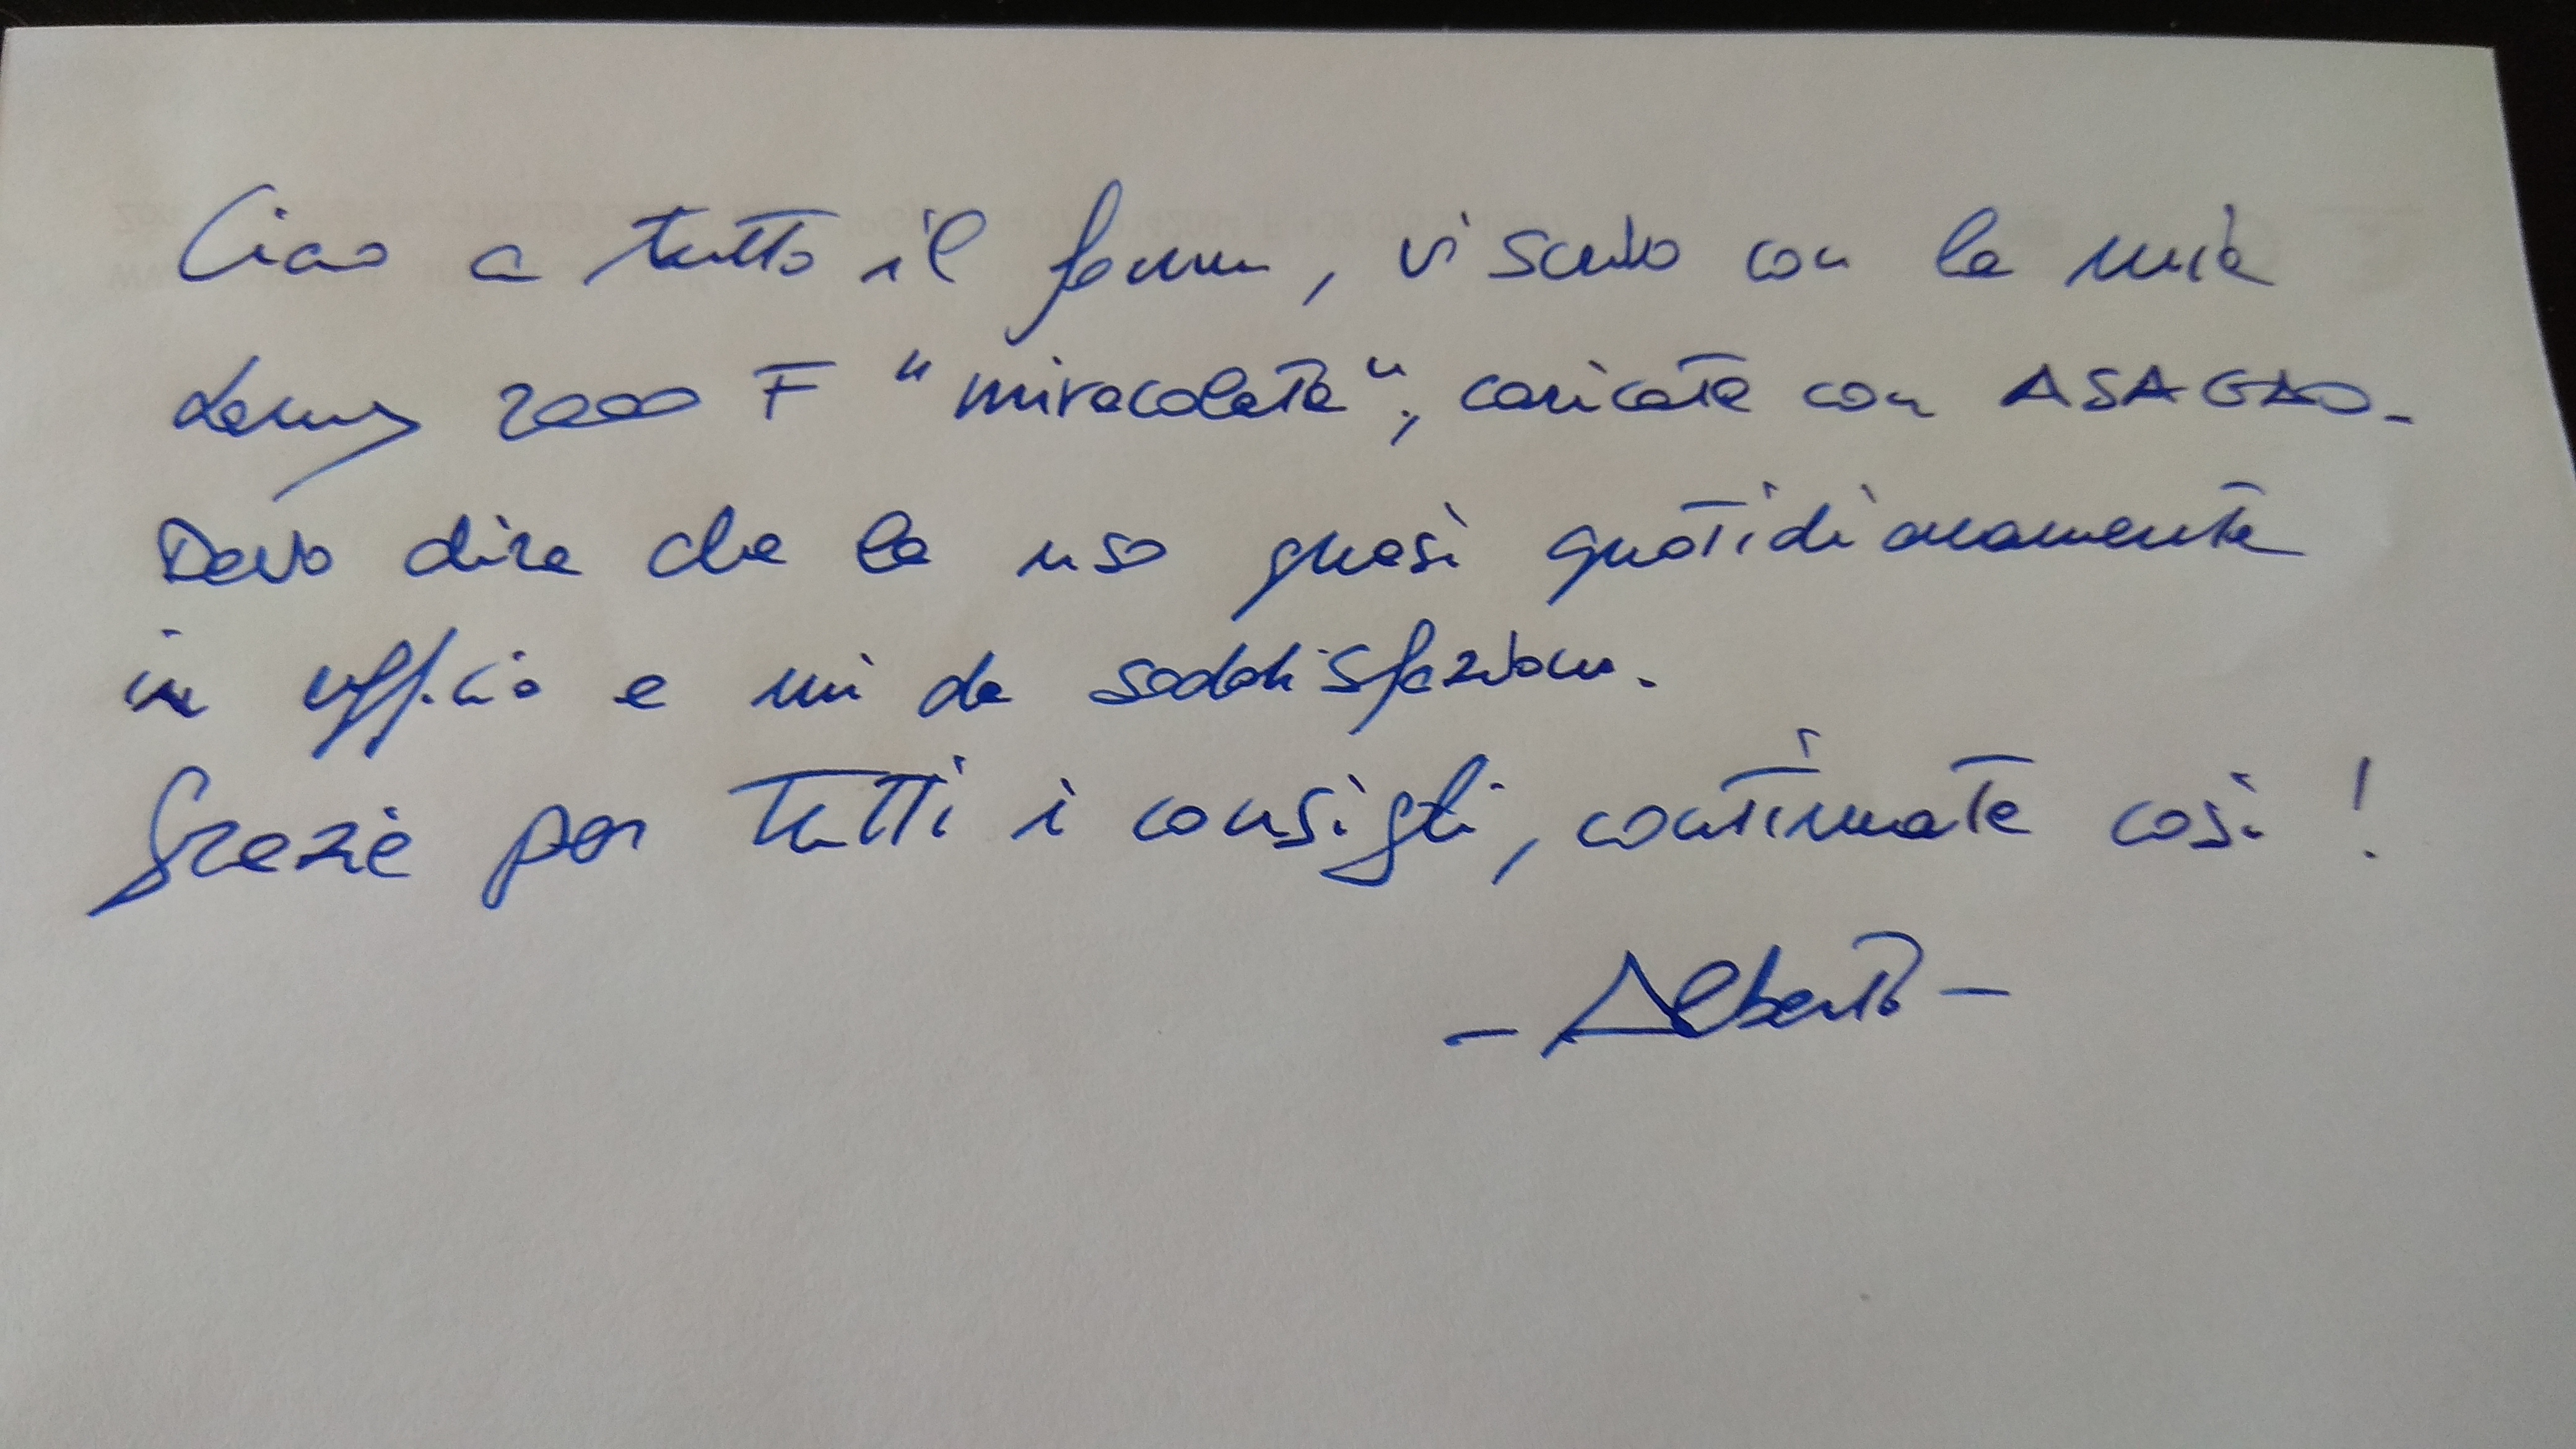 Ciao a tutto il forum, vi scrivo con la mia
Lamy 2000 F "miracolata", caricata con ASAGAO.
Devo dire che la uso quasi quotidianamente
in ufficio e mi da soddisfazioni.
Grazie per tutti i consigli, continuate così!
- Alberto -